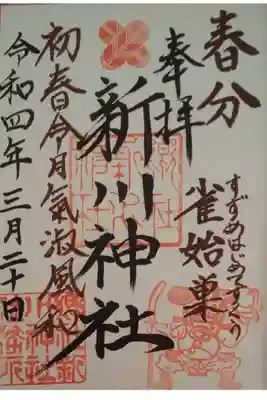 春分
すずめはじめてすくう
雀始巣
奉拝
新川神社
初春令月氣淑風和
令和四年三月二十日